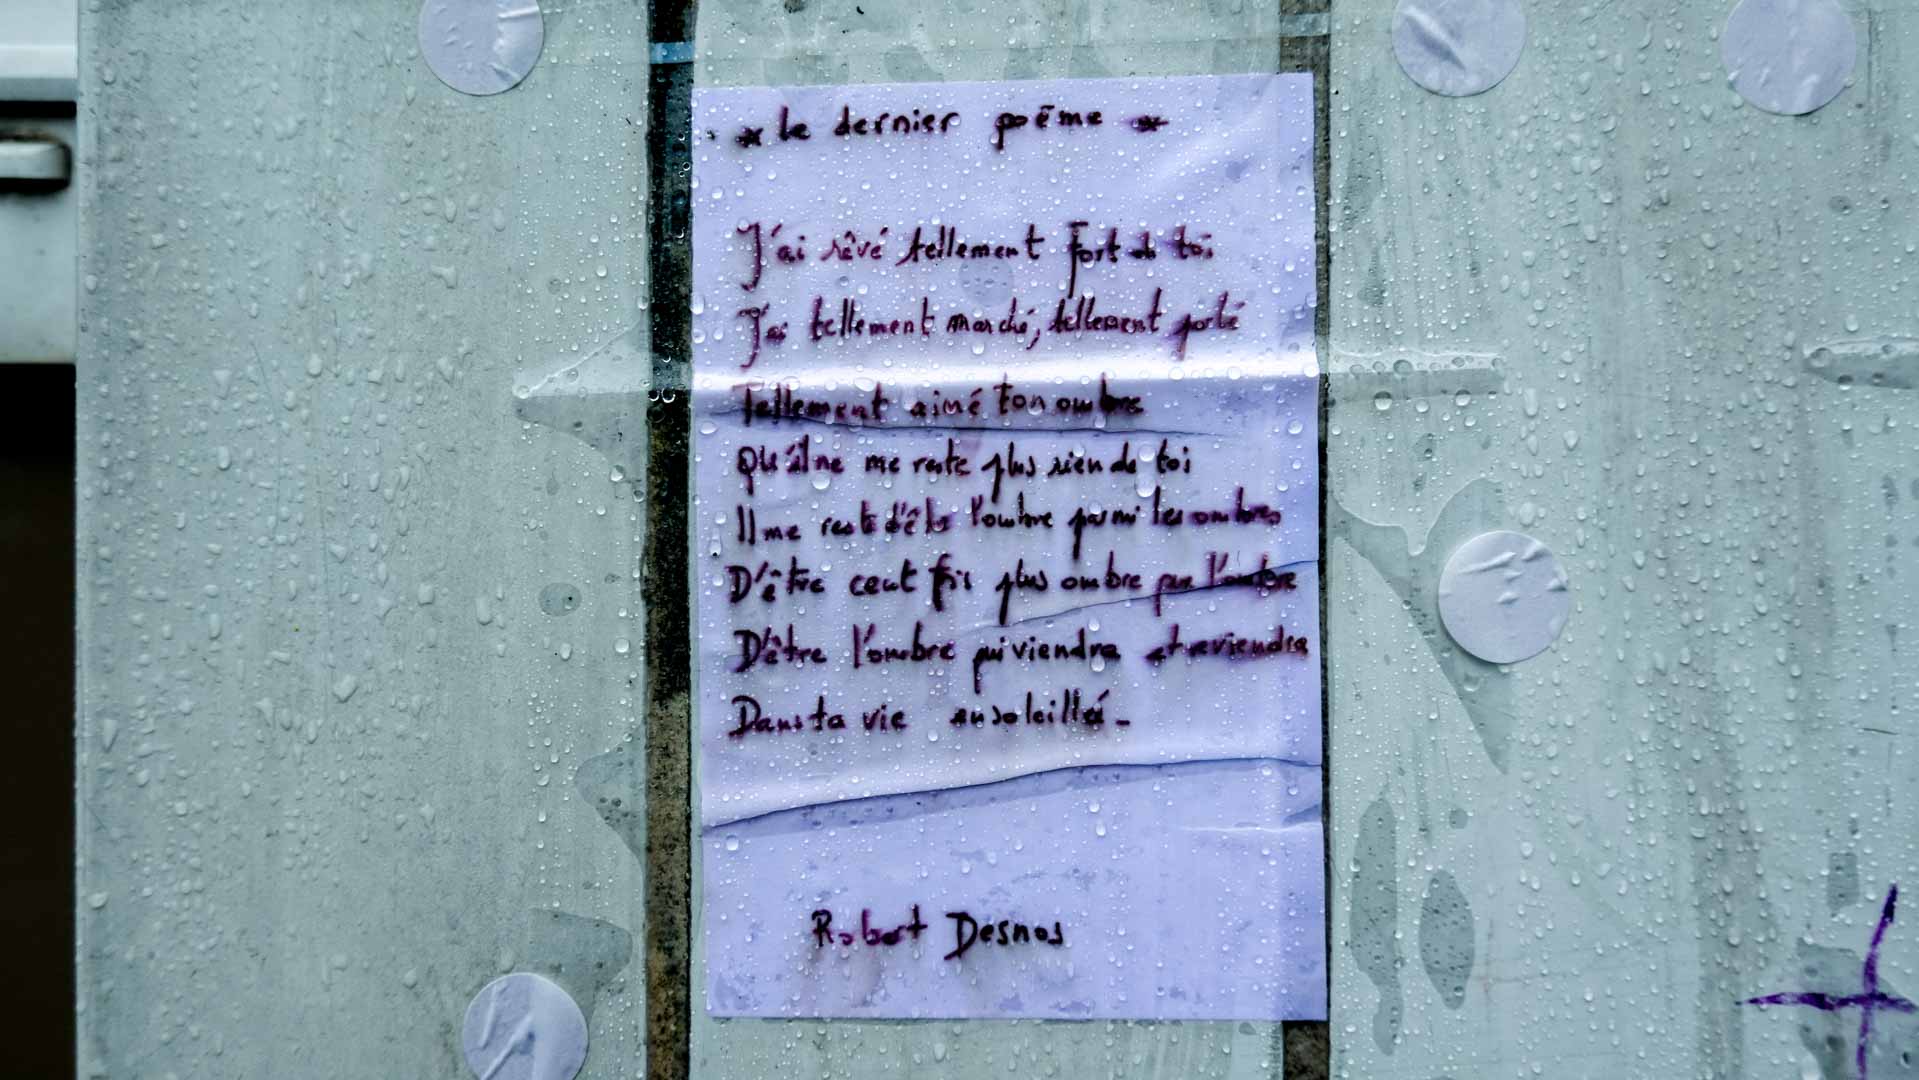 * le dernier poême *
J'ai rêvé tellement fort de toi
J'ai tellement marché, tellement parlé
Tellement aimé ton ombre
Qu'il ne me reste plus rien de toi
Il me reste d'être l'ombre parmi les ombres
D'être cent fois plus ombre que l'ombre
D'être l'ombre qui viendra et reviendra
Dans ta vie ensoleillée_
Robert Desnos